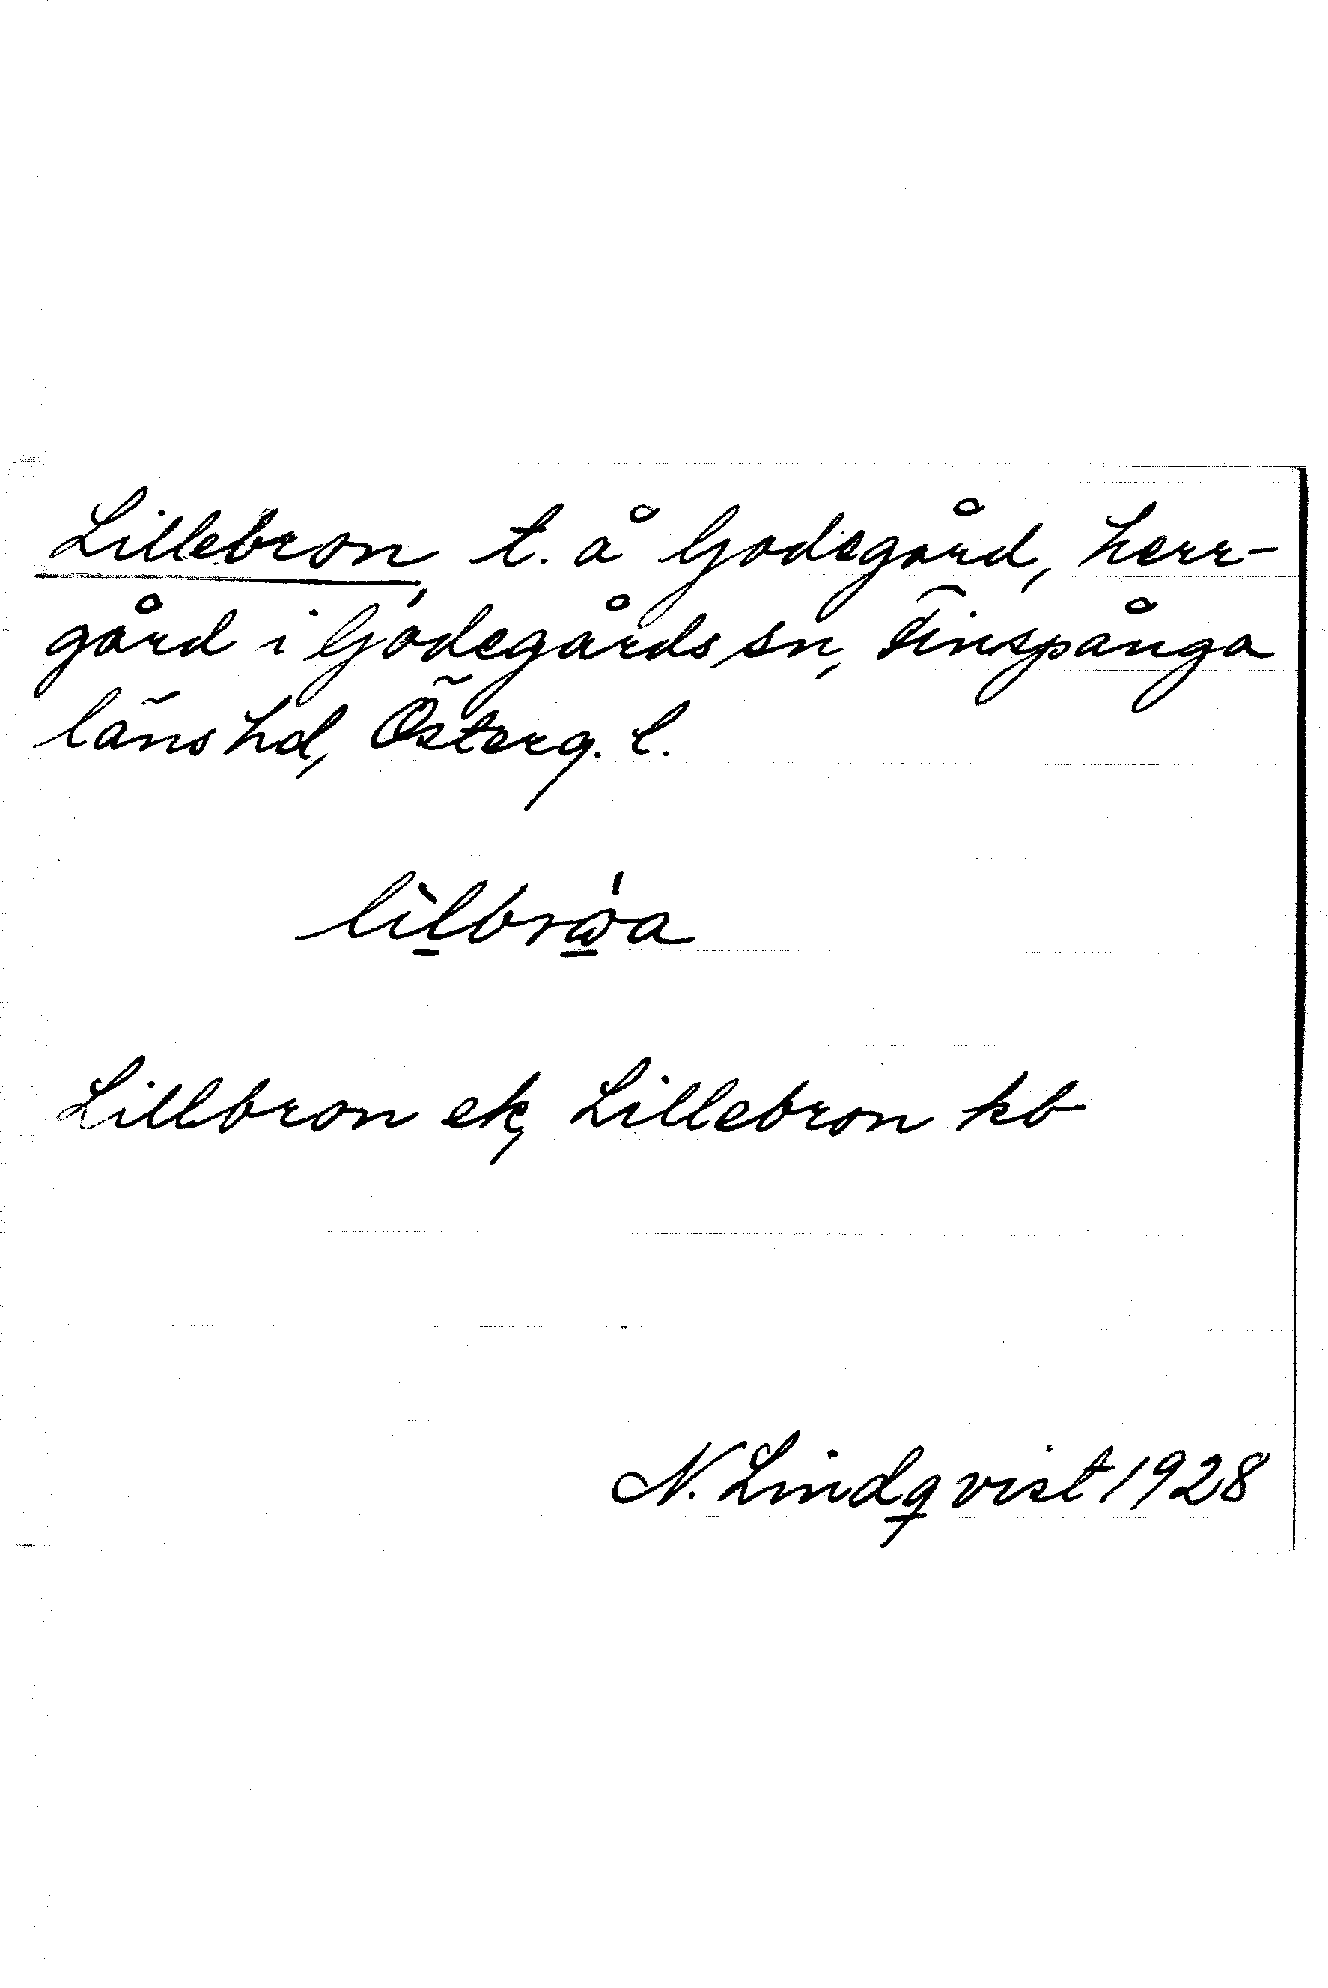 Lillebron, t. å Godegård, herr-
gård i Godegårds sn, Finspånga
läns hd, Österg. l.
lìlbrẃa
Lillbron ek, Lillebron kb
N. Lindqvist 1928